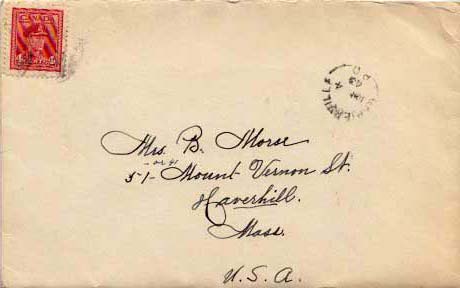 CANADA
4 4
Mrs. B. Morse
or 41
51 - Mount Vernon St.
Haverhill.
Mass.
U.S.A.